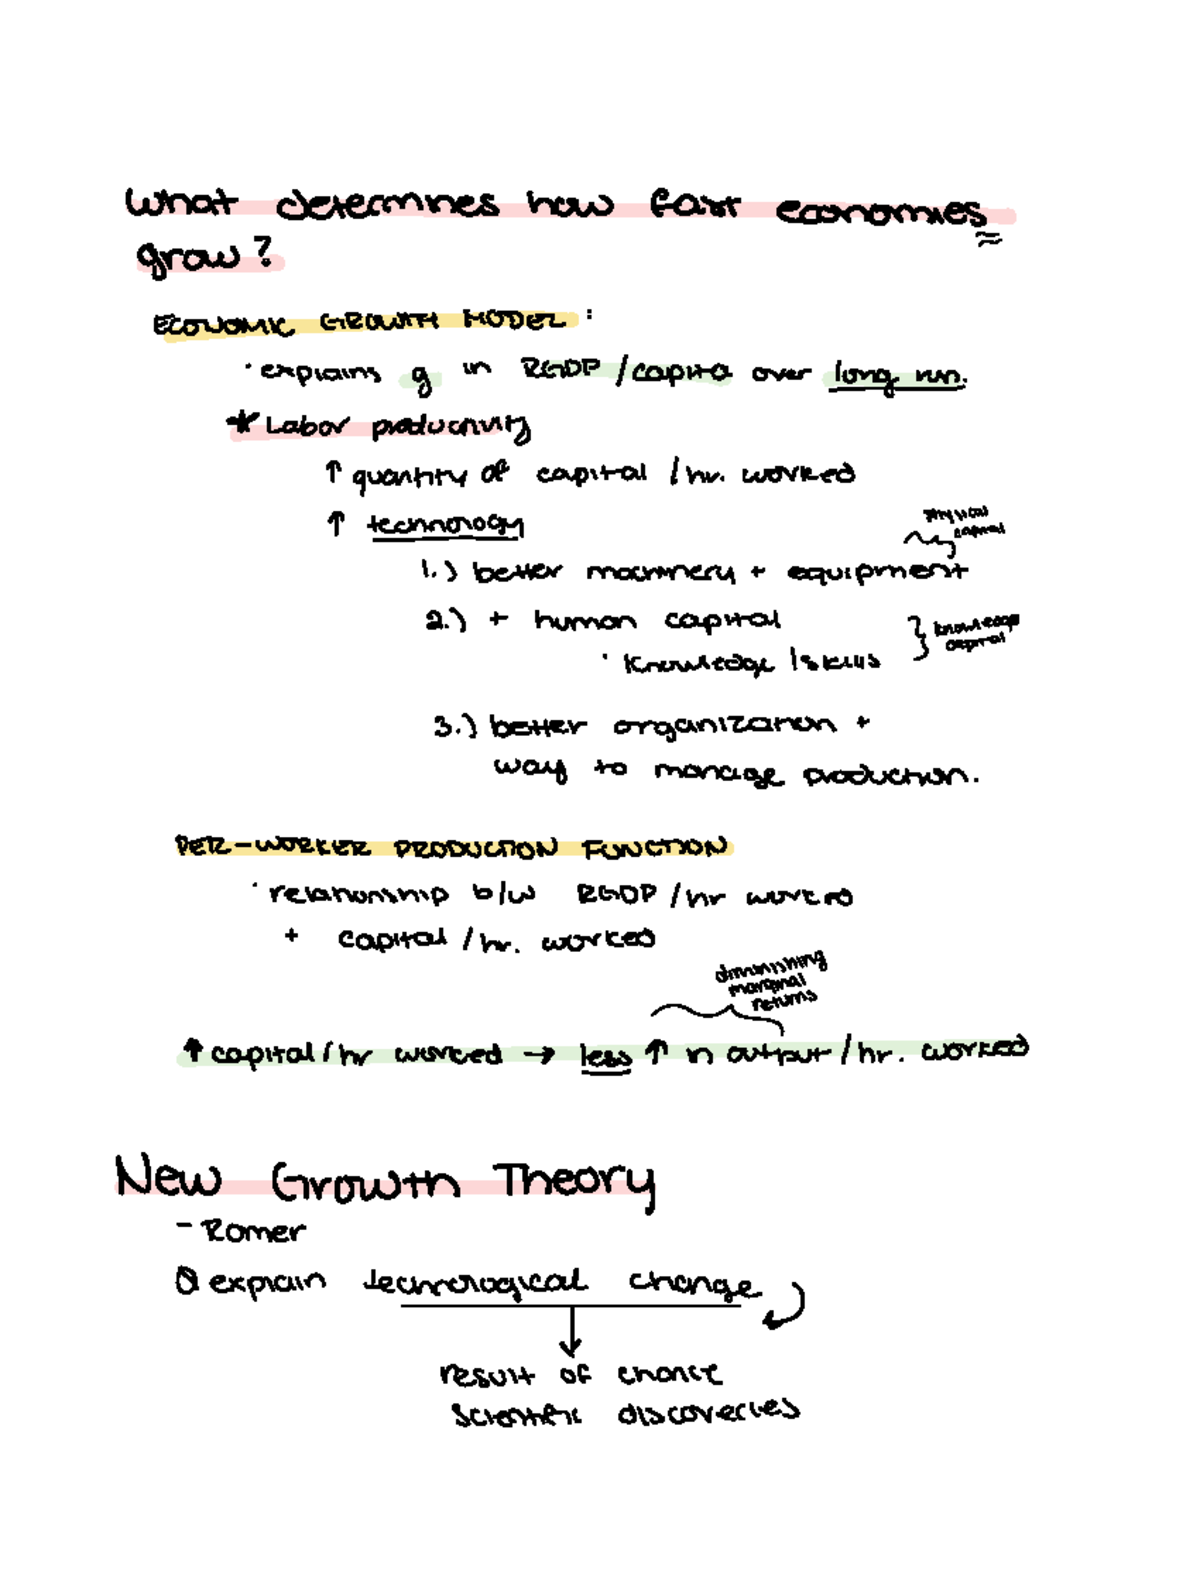 What determines how fast economies
grow?
ECONOMIC GROWTH MODEL:
· explains g in RGDP /capita over long run.
* Labor productivity
↑ quantity of capital /hr. worked
↑ technology
physical
capital
1.) better machinery + equipment
2.) + human capital
} knowledge
capital
· knowledge /skills
3.) better organization +
way to manage production.
PER-WORKER PRODUCTION FUNCTION
· relationship b/w RGDP /hr worked
+ capital /hr. worked
diminishing
marginal
returns
↑ capital/hr worked → less ↑ in output/hr. worked
New Growth Theory
- Romer
explain technological change
result of chance
scientific discoveries